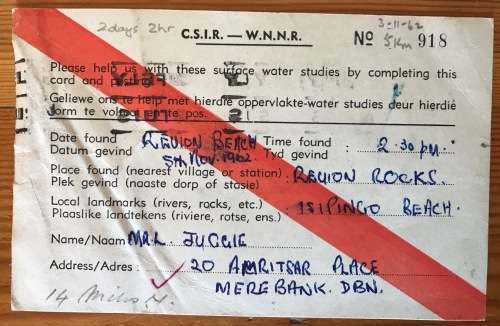 2 days 2hr
3-11-62
C.S.I.R. — W.N.N.R. No 918
5km
Please help us with these surface water studies by completing this
card and posting.
Geliewe ons te help met hierdie oppervlakte-water studies deur hierdie
vorm te voltooi en te pos.
Date found REUION BEACH Time found : 2.30 p.m.
Datum gevind 5th NOV. 1962 Tyd gevind
Place found (nearest village or station) : REUION ROCKS.
Plek gevind (naaste dorp of stasie)
Local landmarks (rivers, rocks, etc.) : ISIPINGO BEACH.
Plaaslike landtekens (riviere, rotse, ens.)
Name/Naam MR L. JUGGIE
Address/Adres : 20 AMRITSAR PLACE
MEREBANK. DBN.
14 Miles